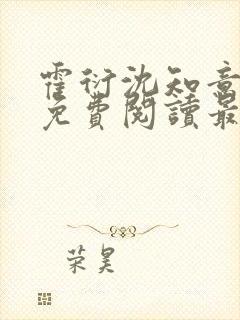 霍衍沈知意
免費閱讀最
荣昊